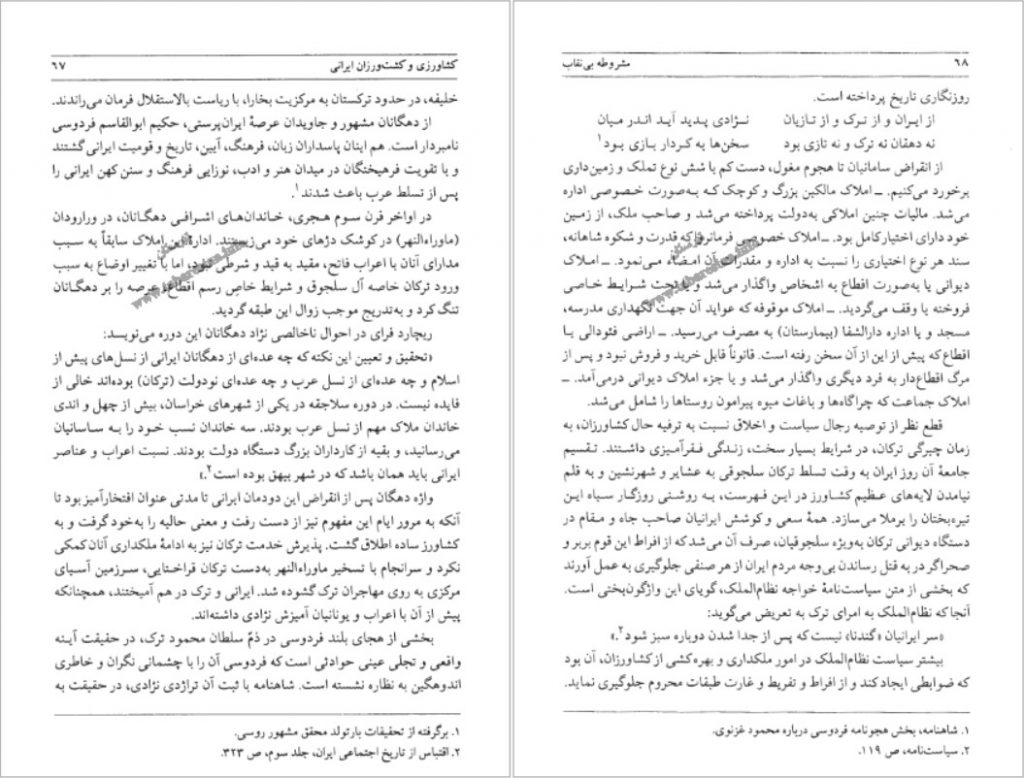 کشاورزی و کشت‌ورزان ایرانی ۶۷
خلیفه، در حدود ترکستان به مرکزیت بخارا، با ریاست بالاستقلال فرمان می‌راندند.
از دهگانان مشهور و جاویدان عرصهٔ ایران‌پرستی، حکیم ابوالقاسم فردوسی
نامبردار است. هم اینان پاسداران زبان، فرهنگ، آیین، تاریخ و قومیت ایرانی گشتند
و با تقویت فرهیختگان در میدان هنر و ادب، نوزایی فرهنگ و سنن کهن ایرانی را
پس از تسلط عرب باعث شدند۱.
در اواخر قرن سوم هجری، خاندان‌های اشرافی دهگانان، در ورارودان
(ماوراءالنهر) در کوشک دژهای خود می‌زیستند. ادارهٔ این املاک سابقاً به سبب
مدارای آنان با اعراب فاتح، مقید به قید و شرطی نبود، اما با تغییر اوضاع به سبب
ورود ترکان خاصه آل سلجوق و شرایط خاص رسم اقطاع، عرصه را بر دهگانان
تنگ کرد و به‌تدریج موجب زوال این طبقه گردید.
ریچارد فرای در احوال ناخالصی نژاد دهگانان این دوره می‌نویسد:
«تحقیق و تعیین این نکته که چه عده‌ای از دهگانان ایرانی از نسل‌های پیش از
اسلام و چه عده‌ای از نسل عرب و چه عده‌ای نودولت (ترکان) بوده‌اند خالی از
فایده نیست. در دوره سلاجقه در یکی از شهرهای خراسان، بیش از چهل و اندی
خاندان ملاک مهم از نسل عرب بودند. سه خاندان نسب خود را به ساسانیان
می‌رسانید، و بقیه از کارداران بزرگ دستگاه دولت بودند. نسبت اعراب و عناصر
ایرانی باید همان باشد که در شهر بیهق بوده است۲.»
واژه دهگان پس از انقراض این دودمان ایرانی تا مدتی عنوان افتخارآمیز بود تا
آنکه به مرور ایام این مفهوم نیز از دست رفت و معنی حالیه را به‌خود گرفت و به
کشاورز ساده اطلاق گشت. پذیرش خدمت ترکان نیز به ادامهٔ ملکداری آنان کمکی
نکرد و سرانجام با تسخیر ماوراءالنهر به‌دست ترکان قراختایی، سرزمین آسیای
مرکزی به روی مهاجران ترک گشوده شد. ایرانی و ترک در هم آمیختند، همچنانکه
پیش از آن با اعراب و یونانیان آمیزش نژادی داشته‌اند.
بخشی از هجای بلند فردوسی در ذمّ سلطان محمود ترک، در حقیقت آینه
واقعی و تجلی عینی حوادثی است که فردوسی آن را با چشمانی نگران و خاطری
اندوهگین به نظاره نشسته است. شاهنامه با ثبت آن تراژدی نژادی، در حقیقت به
۱. برگرفته از تحقیقات بارتولد محقق مشهور روسی.
۲. اقتباس از تاریخ اجتماعی ایران، جلد سوم، ص ۳۲۳.
۶۸ مشروطه بی‌نقاب
روزنگاری تاریخ پرداخته است.
از ایران و از ترک و از تازیان نژادی پدید آید اندر میان
نه دهقان نه ترک و نه تازی بود سخن‌ها به کردار بازی بود۱
از انقراض سامانیان تا هجوم مغول، دست کم با شش نوع تملک و زمین‌داری
برخورد می‌کنیم. ـ املاک مالکین بزرگ و کوچک که به‌صورت خصوصی اداره
می‌شد. مالیات چنین املاکی به‌دولت پرداخته می‌شد و صاحب ملک، از زمین
خود دارای اختیار کامل بود. ـ املاک خصوصی فرمانروا که قدرت و شکوه شاهانه،
سند هر نوع اختیاری را نسبت به اداره و مقدرات آن امضاء می‌نمود. ـ املاک
دیوانی یا به‌صورت اقطاع به اشخاص واگذار می‌شد و یا تحت شرایط خاصی
فروخته یا وقف می‌گردید. ـ املاک موقوفه که عواید آن جهت نگهداری مدرسه،
مسجد و یا اداره دارالشفا (بیمارستان) به مصرف می‌رسید. ـ اراضی فئودالی یا
اقطاع که پیش از این از آن سخن رفته است. قانوناً قابل خرید و فروش نبود و پس از
مرگ اقطاع‌دار به فرد دیگری واگذار می‌شد و یا جزء املاک دیوانی درمی‌آمد. ـ
املاک جماعت که چراگاه‌ها و باغات میوه پیرامون روستاها را شامل می‌شد.
قطع نظر از توصیه رجال سیاست و اخلاق نسبت به ترفیه حال کشاورزان، به
زمان چیرگی ترکان، در شرایط بسیار سخت، زندگی فقرآمیزی داشتند. تقسیم
جامعهٔ آن روز ایران به وقت تسلط ترکان سلجوقی به عشایر و شهرنشین و به قلم
نیامدن لایه‌های عظیم کشاورز در این فهرست، به روشنی روزگار سیاه این
تیره‌بختان را برملا می‌سازد. همهٔ سعی و کوشش ایرانیان صاحب جاه و مقام در
دستگاه دیوانی ترکان به‌ویژه سلجوقیان، صرف آن می‌شد که از افراط این قوم بربر و
صحراگر در به قتل رساندن بی‌وجه مردم ایران از هر صنفی جلوگیری به عمل آورند
که بخشی از متن سیاست‌نامهٔ خواجه نظام‌الملک، گویای این واژگون‌بختی است.
آنجا که نظام‌الملک به امرای ترک به تعریض می‌گوید:
«سر ایرانیان «گندنا» نیست که پس از جدا شدن دوباره سبز شود۲.»
بیشتر سیاست نظام‌الملک در امور ملکداری و بهره‌کشی از کشاورزان، آن بود
که ضوابطی ایجاد کند و از افراط و تفریط و غارت طبقات محروم جلوگیری نماید.
۱. شاهنامه، بخش هجونامه فردوسی درباره محمود غزنوی.
۲. سیاست‌نامه، ص ۱۱۹.